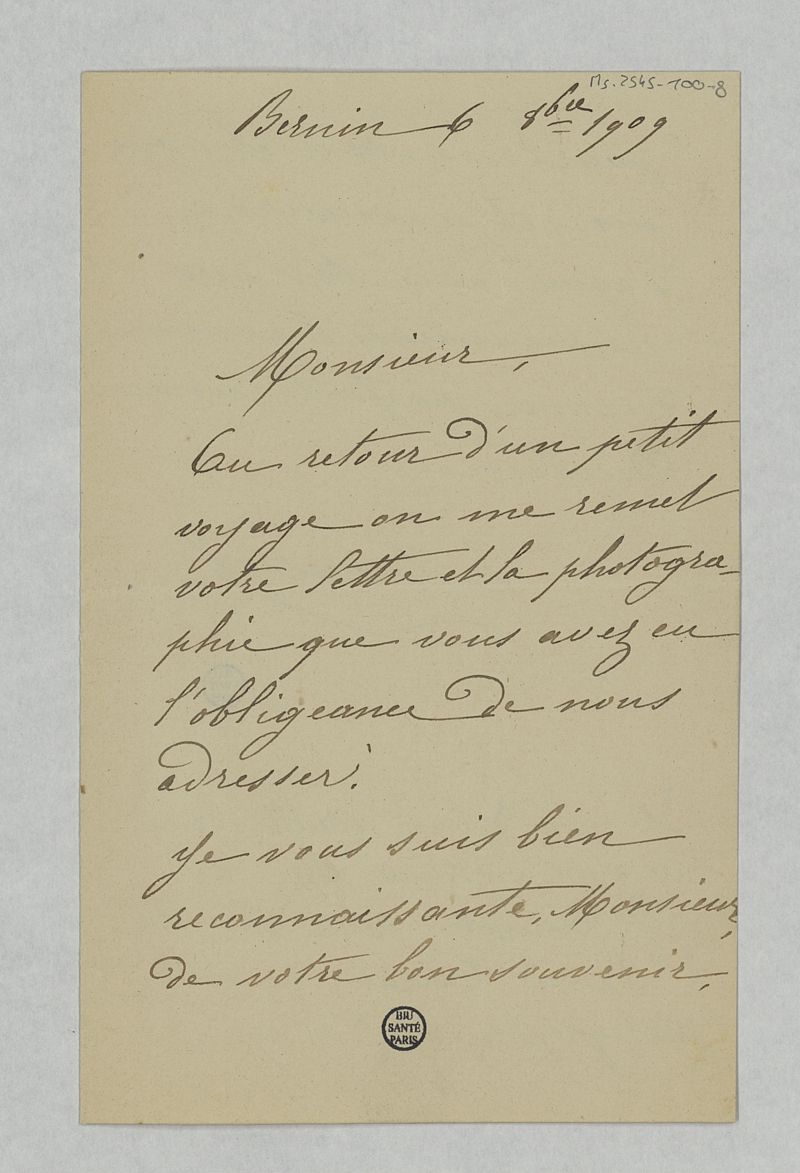 Ms. 2545-100-8
Bernin 6 8bre 1909
Monsieur,
Au retour d'un petit
voyage on me remet
votre lettre et la photogra-
phie que vous avez eu
l'obligeance de nous
adresser.
Je vous suis bien
reconnaissante, Monsieur,
de votre bon souvenir,
BIU
SANTÉ
PARIS